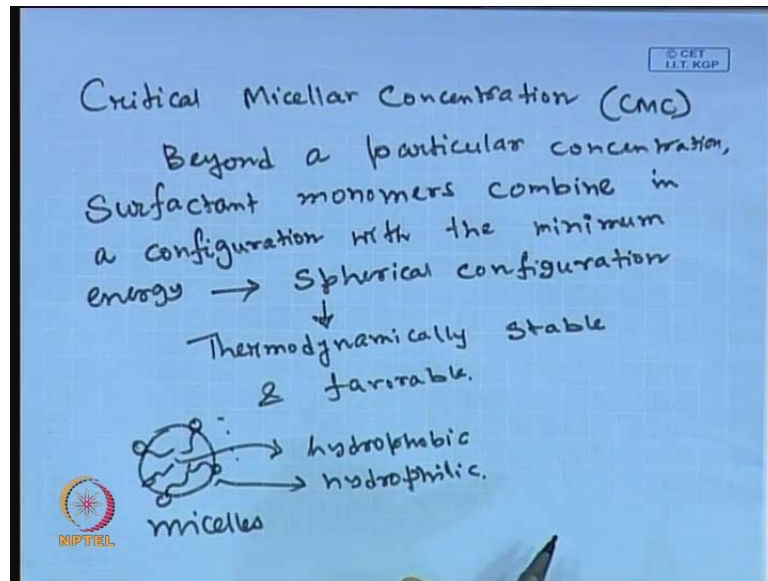 © CET
I.I.T. KGP
Critical Micellar Concentration (CMC)
Beyond a particular concentration,
Surfactant monomers combine in
a configuration with the minimum
energy → Spherical configuration
↓
Thermodynamically stable
& favorable.
→ hydrophobic
→ hydrophilic.
micelles
NPTEL